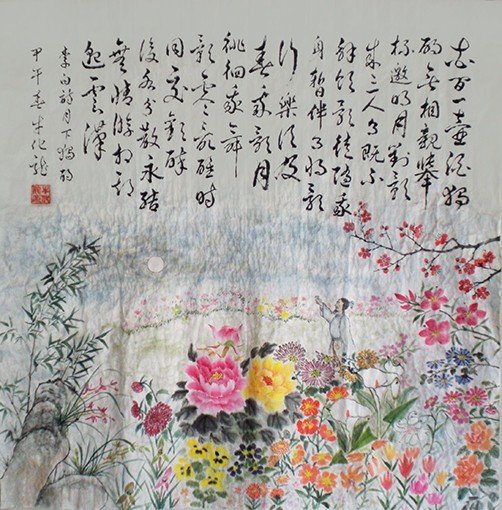 花間一壺酒獨
酌無相親舉
杯邀明月對影
成三人月既不
解飲影徒隨我
身暫伴月將影
行樂須及
春我歌月
徘徊我舞
影零亂醒時
同交歡醉
後各分散永結
無情遊相期
邈雲漢
李白詩月下獨酌
甲午春